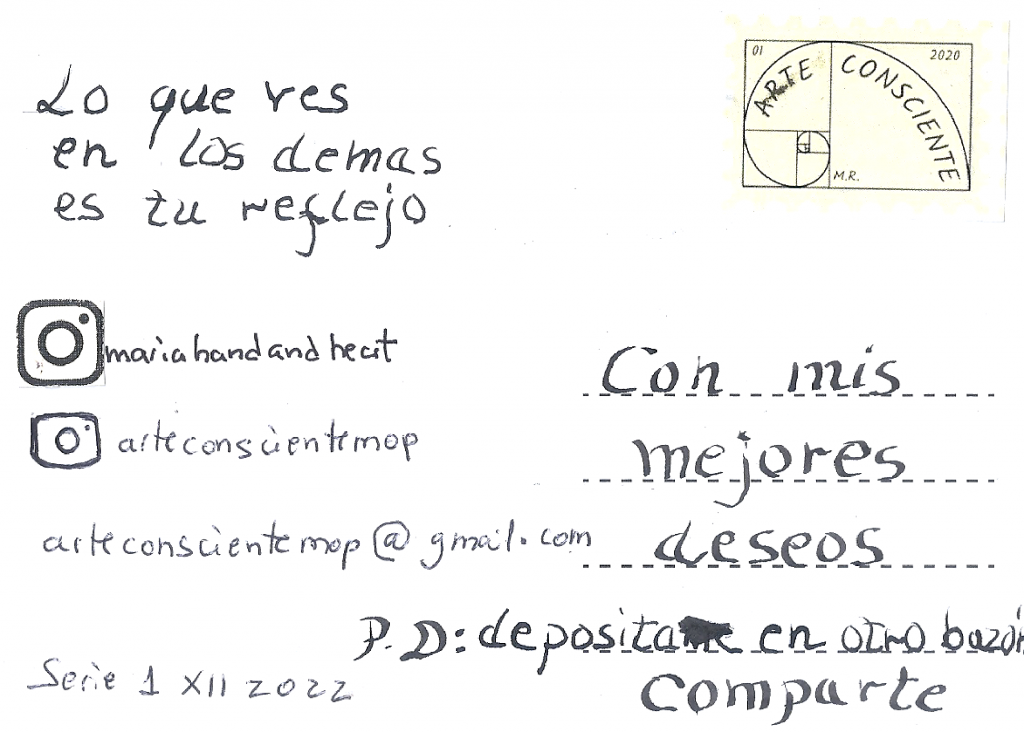 Lo que ves
en los demas
es tu reflejo
01
2020
ARTE CONSCIENTE
M.R.
mariahandandheart
arteconscientemop
arteconscientemop@gmail.com
Con mis
mejores
deseos
P.D: deposita en otro buzón
Comparte
Serie 1 XII 2022